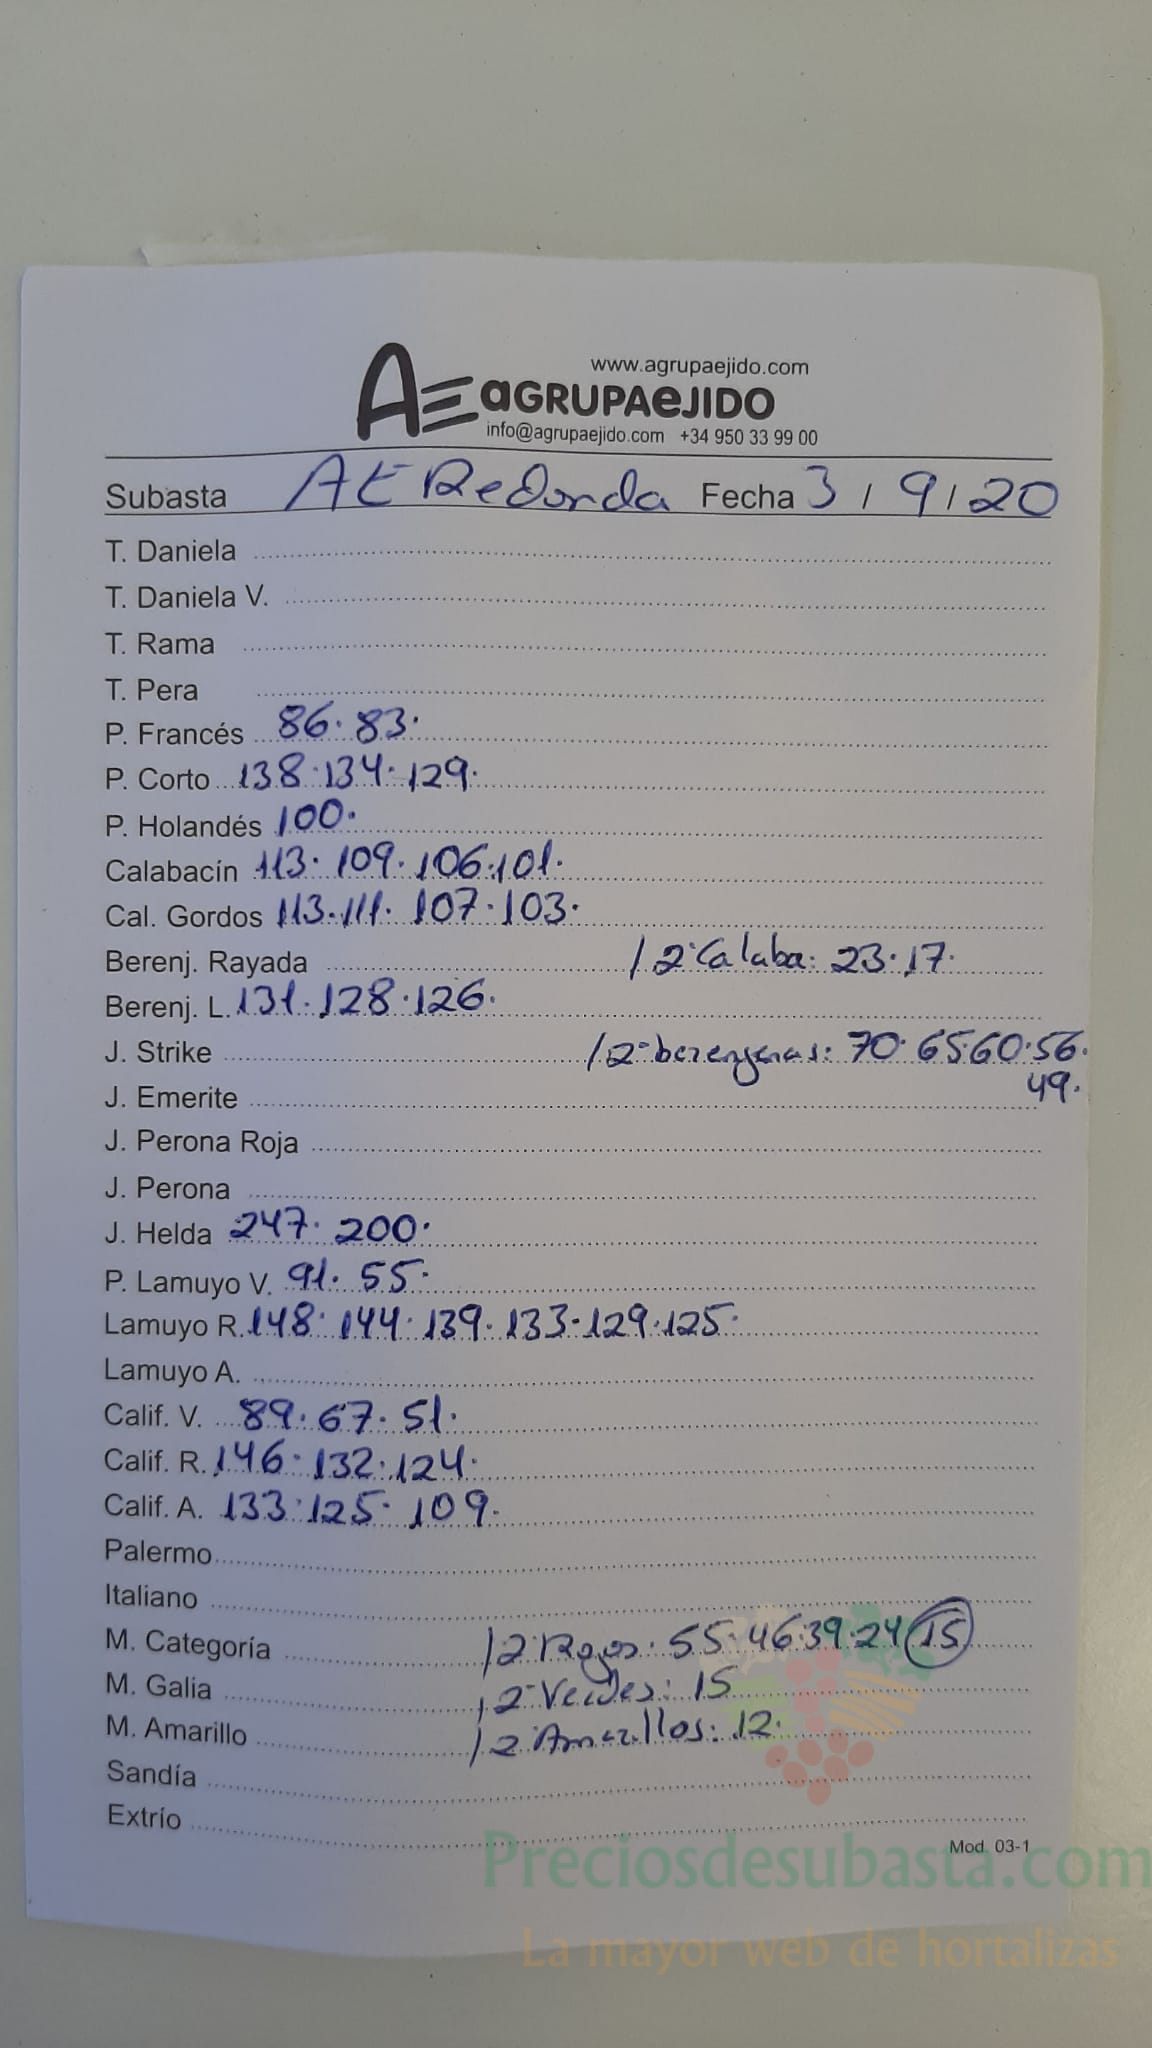 www.agrupaejido.com
AE aGRUPAeJIDO
info@agrupaejido.com +34 950 33 99 00
Subasta AE Redonda Fecha 3 / 9 / 20
T. Daniela
T. Daniela V.
T. Rama
T. Pera
P. Francés 86. 83.
P. Corto 138. 134. 129.
P. Holandés 100.
Calabacín 113. 109. 106. 101.
Cal. Gordos 113. 111. 107. 103.
Berenj. Rayada / 2ª Calaba: 23. 17.
Berenj. L. 131. 128. 126.
J. Strike / 2ª berengenas: 70. 65 60. 56.
49.
J. Emerite
J. Perona Roja
J. Perona
J. Helda 247. 200.
P. Lamuyo V. 91. 55.
Lamuyo R. 148. 144. 139. 133. 129. 125.
Lamuyo A.
Calif. V. 89. 67. 51.
Calif. R. 146. 132. 124.
Calif. A. 133. 125. 109.
Palermo
Italiano
M. Categoría / 2ª Rojos: 55. 46. 39. 24 15
M. Galia / 2ª Verdes: 15
M. Amarillo / 2ª Amarillos: 12.
Sandía
Extrío
Mod. 03-1
Preciosdesubasta.com
La mayor web de hortalizas